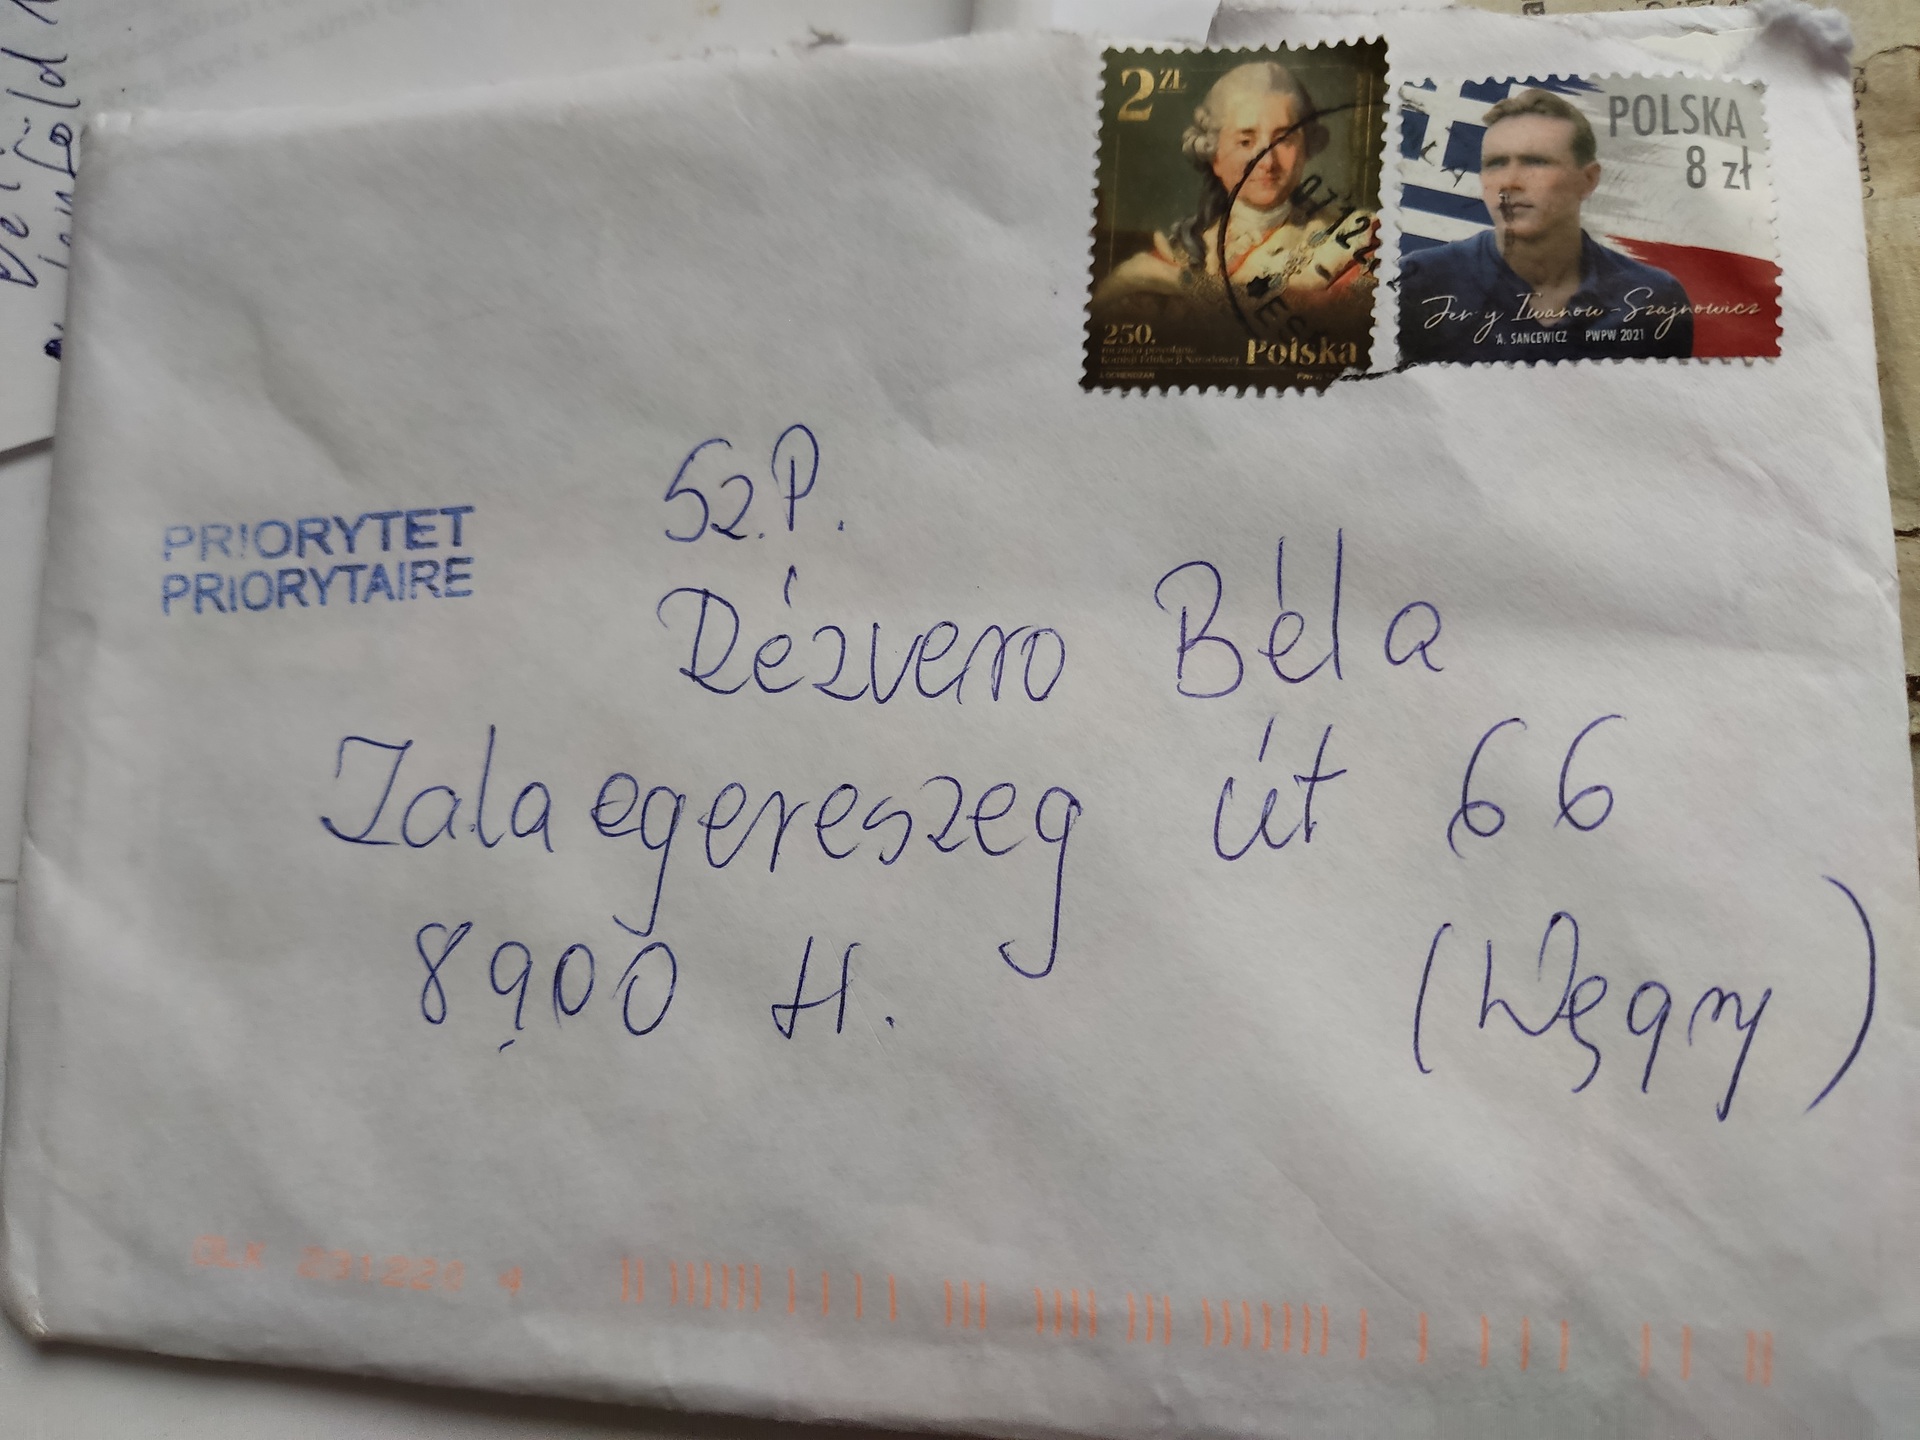 2 ZŁ
250.
rocznica powołania
Komisji Edukacji Narodowej
Polska
POLSKA
8 zł
Jerzy Iwanow-Szajnowicz
A. SANCEWICZ PWPW 2021
PRIORYTET
PRIORYTAIRE
Sz.P.
Rézvero Béla
Zalaegereszeg út 66
8900 H.
(Węgry)